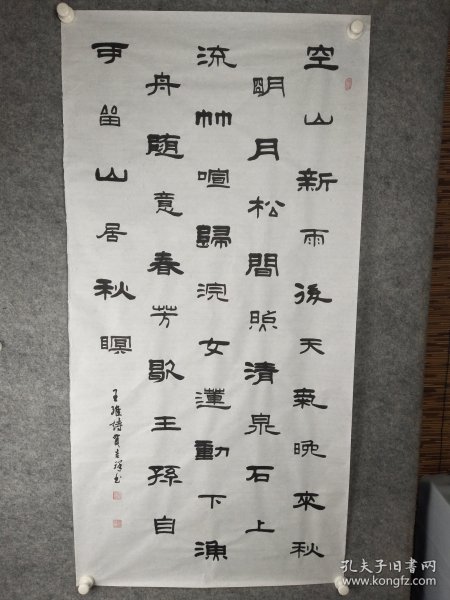 空山新雨後天氣晚來秋
明月松間照清泉石上
流竹喧歸浣女蓮動下漁
舟随意春芳歇王孫自
可留山居秋暝
王維詩
孔夫子旧书网
www.kongfz.com